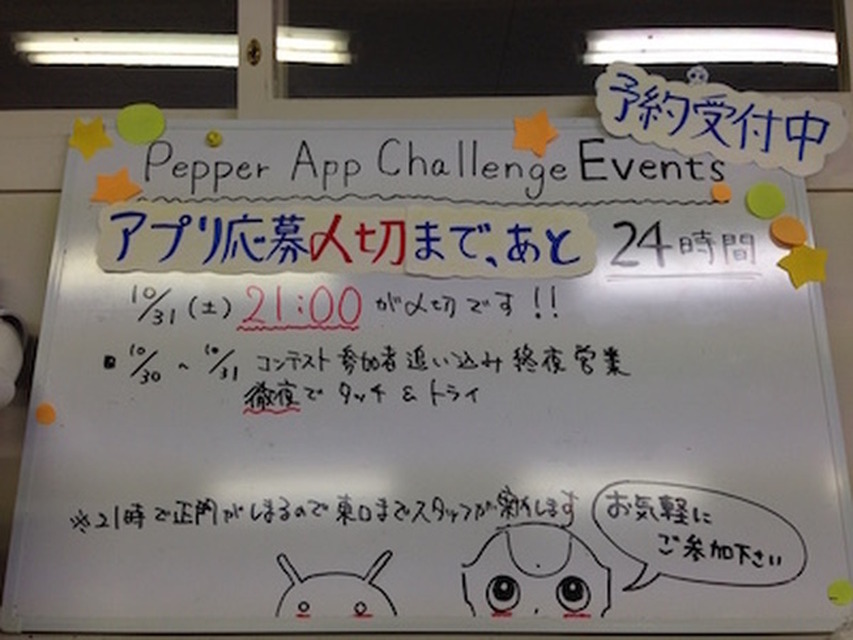 予約受付中
Pepper App Challenge Events
アプリ応募〆切まで、あと 24時間
10/31(土) 21:00 が〆切です!!
10/30 ~ 10/31 コンテスト参加者追い込み終夜営業
徹夜でタッチ & トライ
※21時で正門がしまるので東口までスタッフが案内します
お気軽に
ご参加下さい